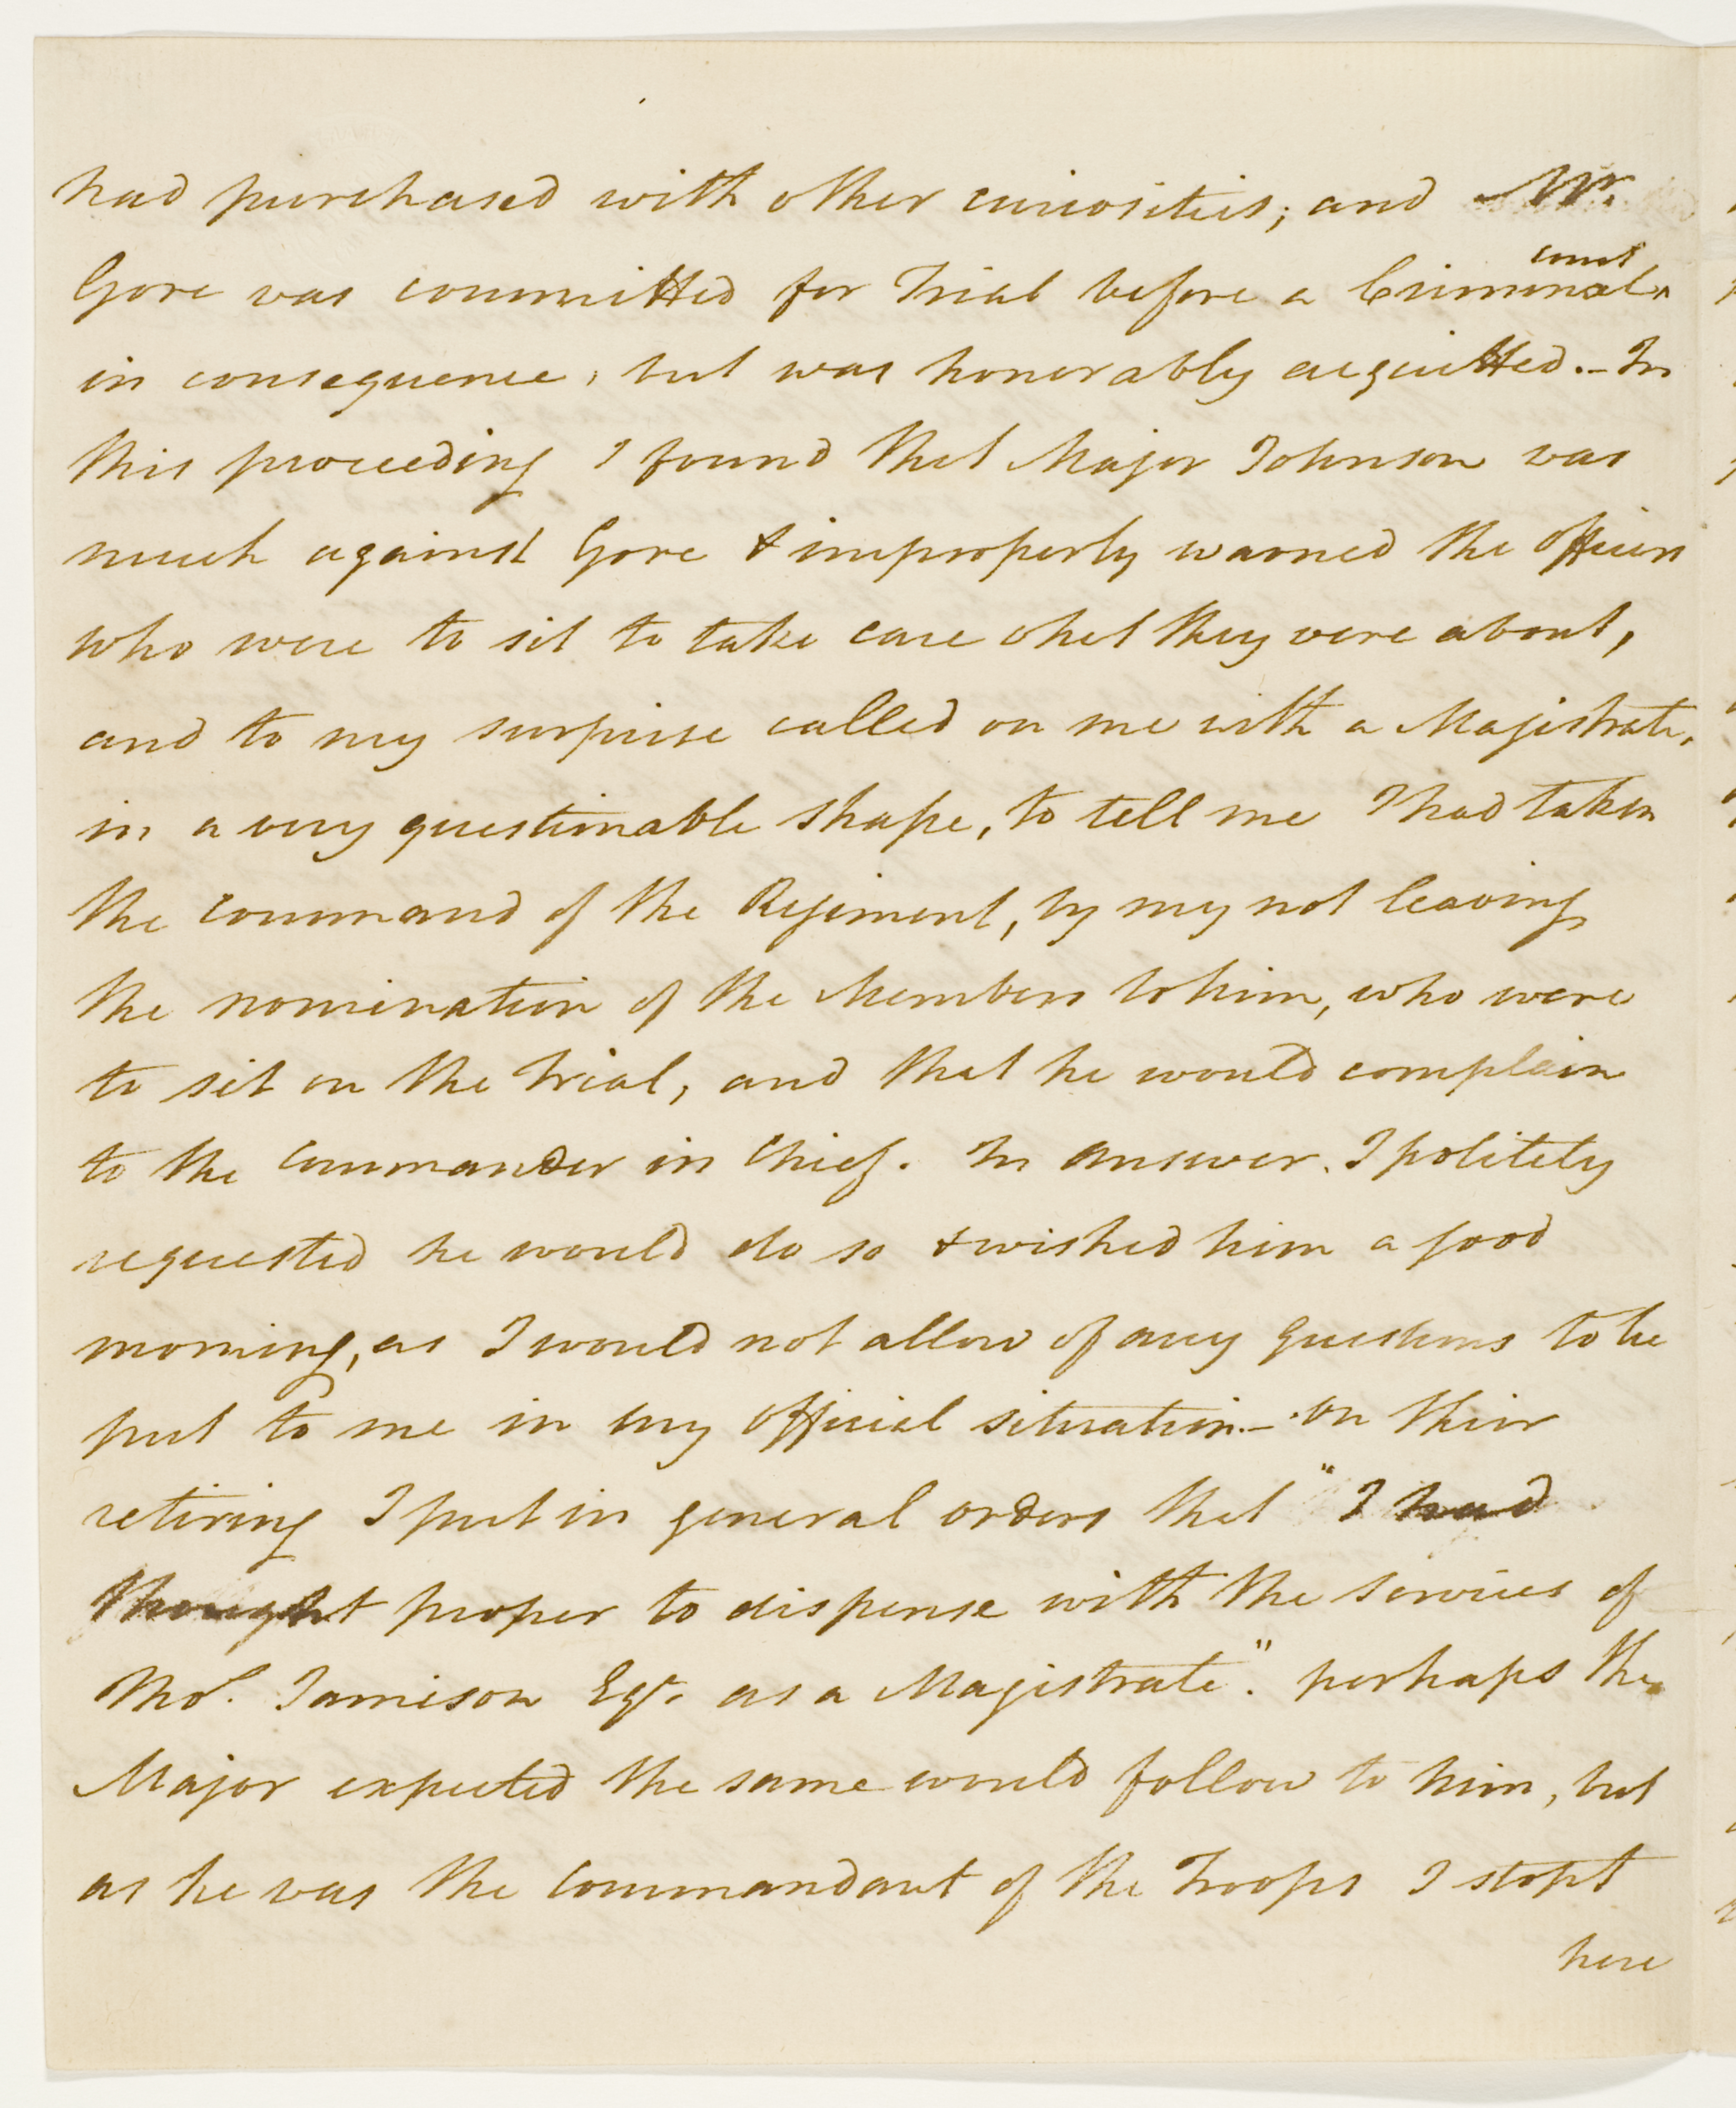 had purchased with other curiosities; and Mr.
Gore was committed for Trial before a Criminal ^court
in consequence, but was honorably acquitted. – In
this proceeding I found that Major Johnson was
much against Gore & improperly warned the officers
who were to sit to take care what they were about,
and to my surprise called on me with a Magistrate,
in a very questionable shape, to tell me I had taken
the command of the Regiment, by my not leaving
the nomination of the Members to him, who were
to sit on the trial, and that he would complain
to the Commander in Chief. In answer, I politely
requested he would do so & wished him a good
morning, as I would not allow of any questions to be
put to me in my official situation. – on their
retiring I put in general orders that "I had
thought proper to dispense with the services of
Thos. Jamison Esqr. as a Magistrate." perhaps the
Major expected the same would follow to him, but
as he was the Commandant of the Troops I stopt
here